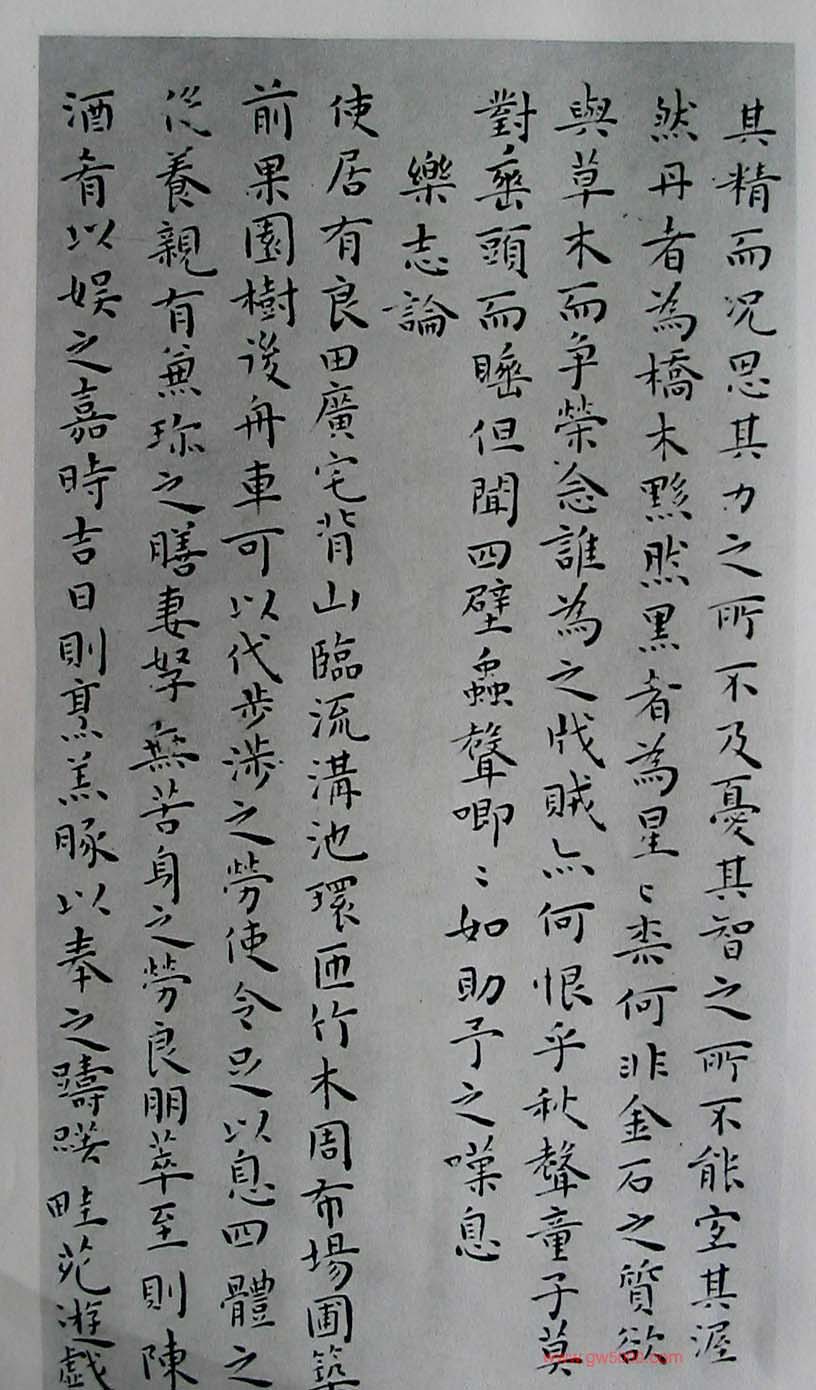 其精而况思其力之所不及憂其智之所不能宜其渥
然丹者為槁木黟然黑者為星〻柰何非金石之質欲
與草木而爭榮念誰為之戕賊亦何恨乎秋聲童子莫
對垂頭而睡但聞四壁蟲聲唧〻如助予之嘆息
樂志論
使居有良田廣宅背山臨流溝池環匝竹木周布場圃築
前果園樹後舟車可以代步涉之勞使令足以息四體之
役養親有兼珍之膳妻孥無苦身之勞良朋萃至則陳
酒肴以娛之嘉時吉日則烹羔豚以奉之躊躇畦苑遊戲